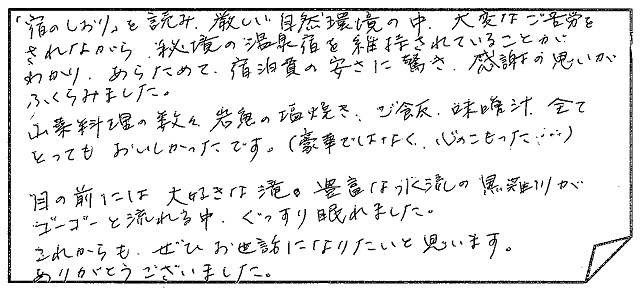 「宿のしおり」を読み、厳しい自然環境の中、大変なご苦労を
されながら、秘境の温泉宿を維持されていることが
わかり、あらためて、宿泊費の安さに驚き、感謝の思いが
ふくらみました。
山菜料理の数々、岩魚の塩焼き、ご飯、味噌汁、全て
とっても おいしかったです。（豪華ではなく、心のこもった…）
目の前には 大好きな滝。豊富な水流の 黒薙川が
ゴーゴーと流れる中、ぐっすり眠れました。
これからも、ぜひ お世話になりたいと思います。
ありがとうございました。